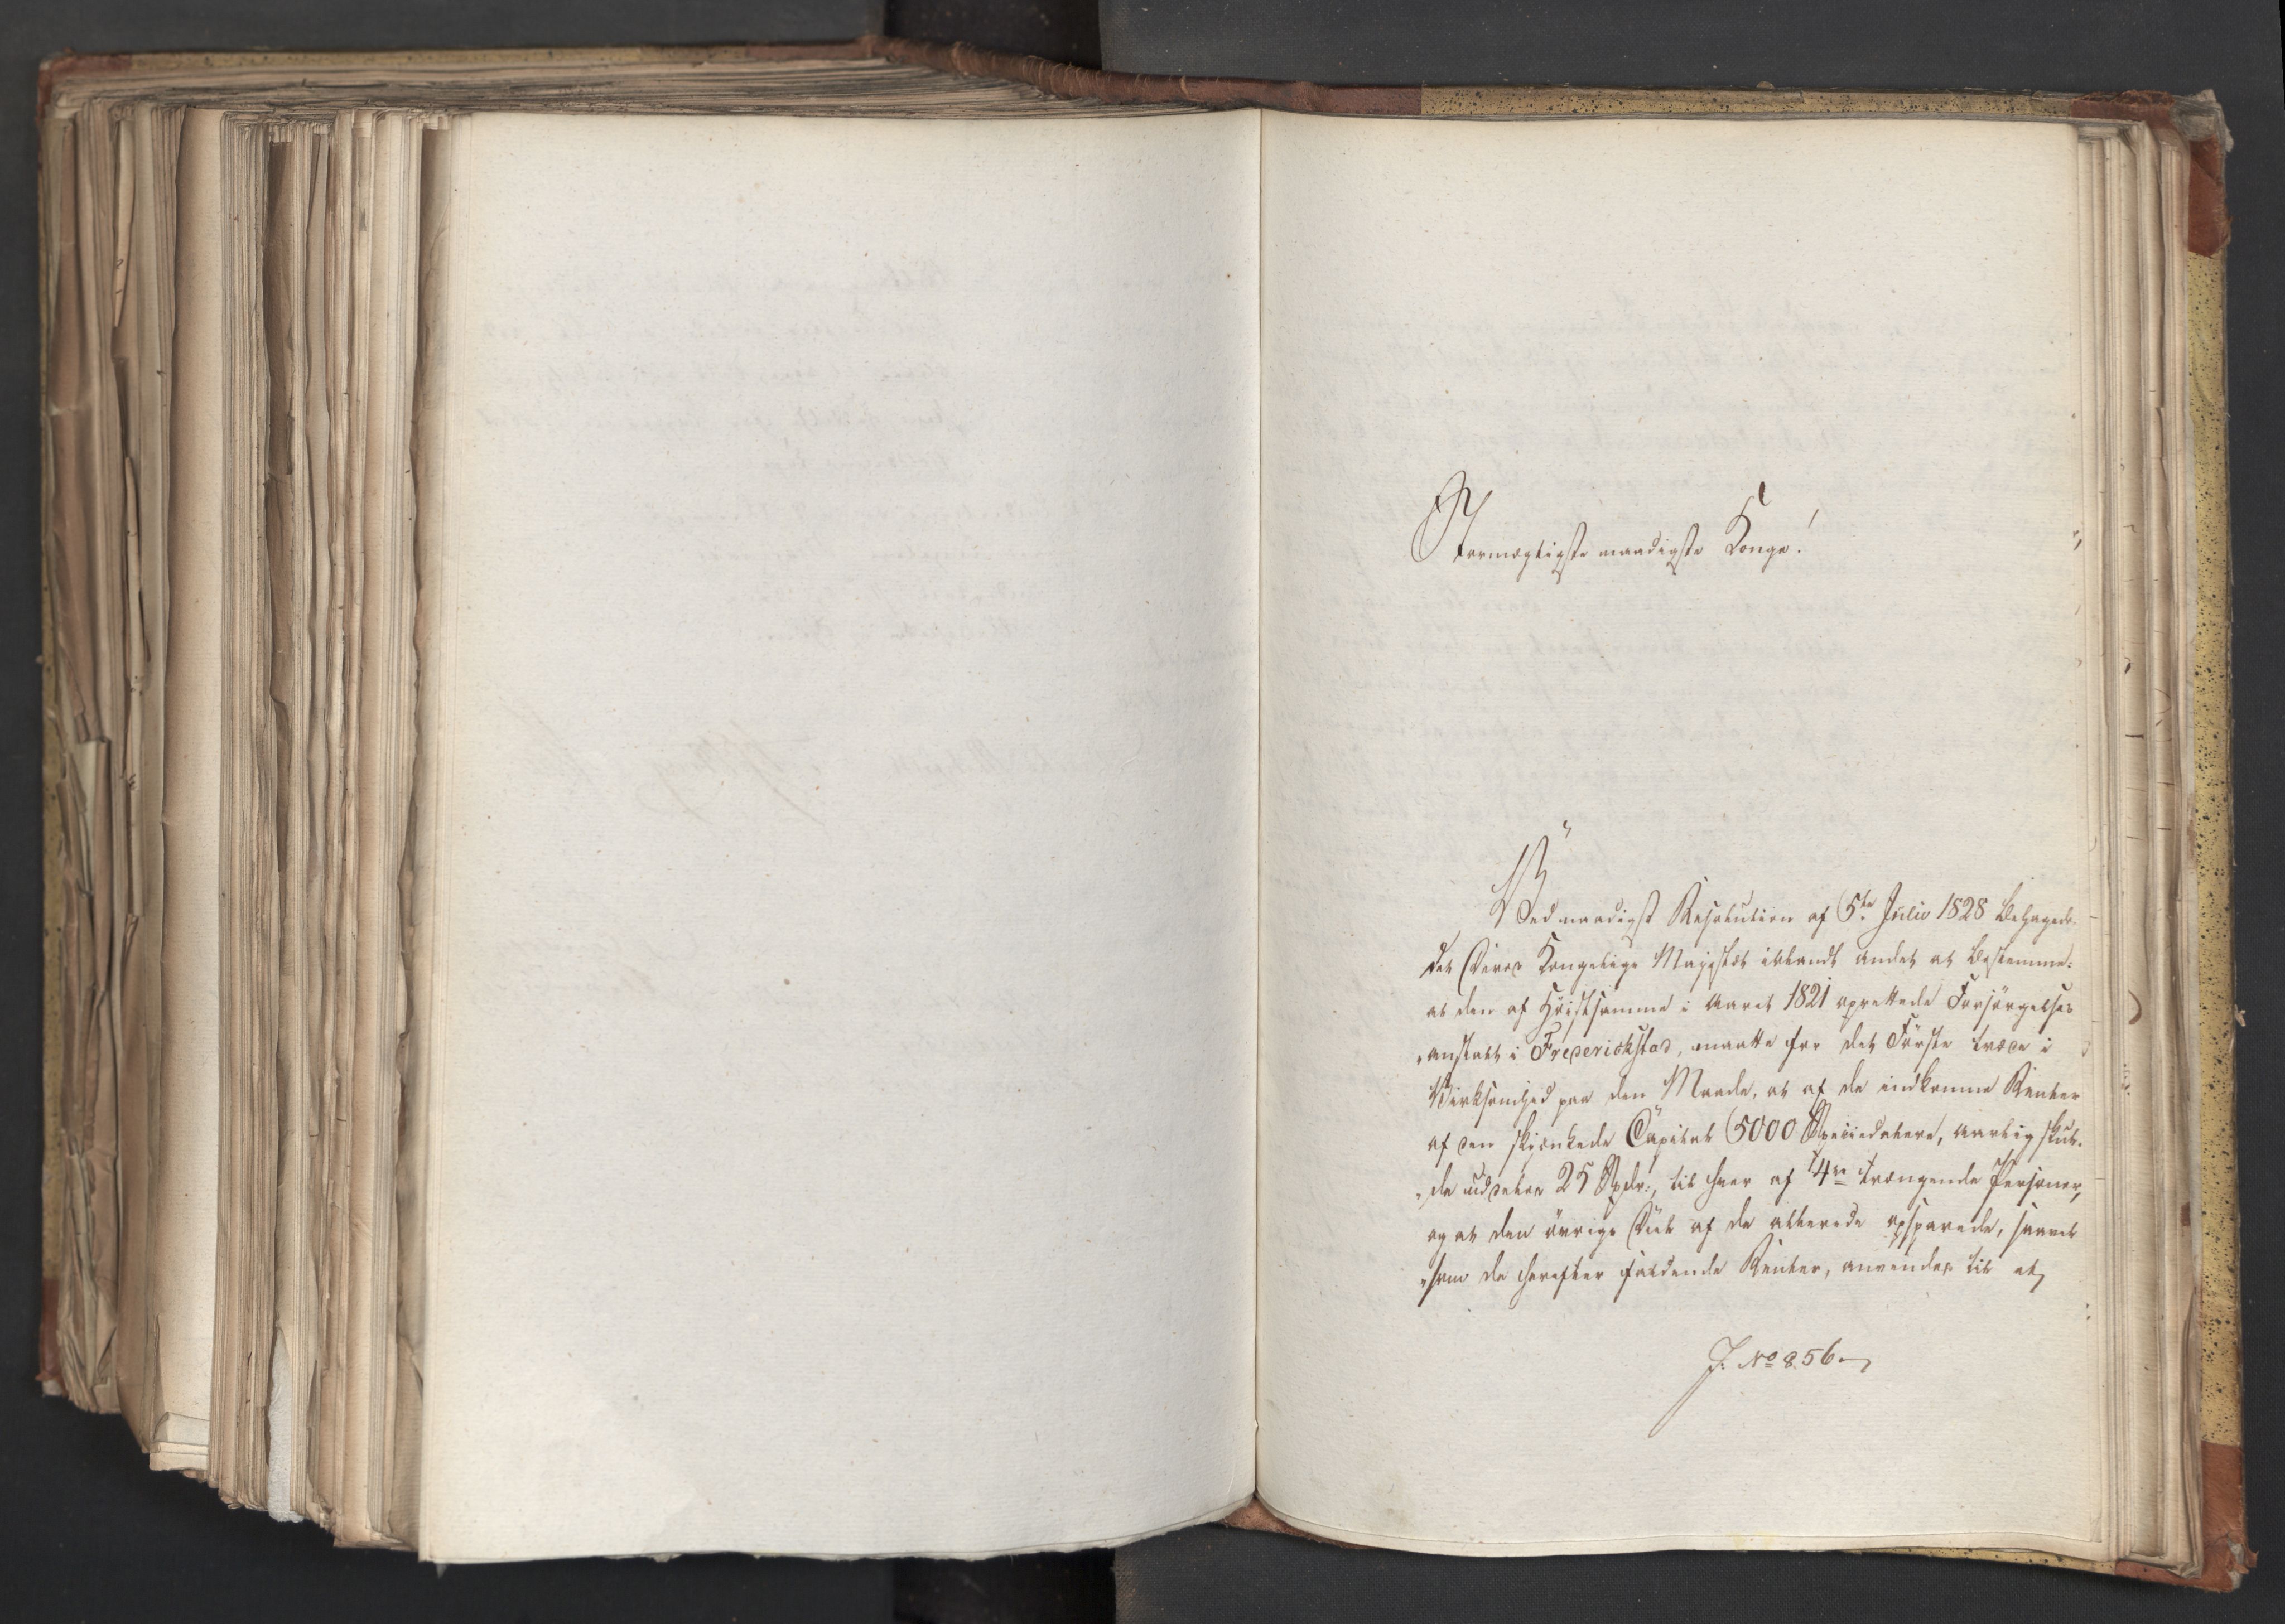 Stormægtigste naadigste Konge!
Ved naadigst Resolution af 5te Julio 1828 behagede
det Deres Kongelige Majestæt iblandt andet at bestemme:
at den af Høistsamme i Aaret 1821 oprettede Forsörgelses
„anstalt i Frederickstad, maatte for det Förste træde i
Virksomhed paa den Maade, at af de indkomne Renter
af den skjenkede Capital 5000 Speciedalere, aarlig skul-
„de uddeles 25 Spdr:, til hver af 4re trængende Personer,
og at den övrige Deel af de allerede opsparede, saavel
„som de herefter faldende Renter, anvendes til at
J. No 856